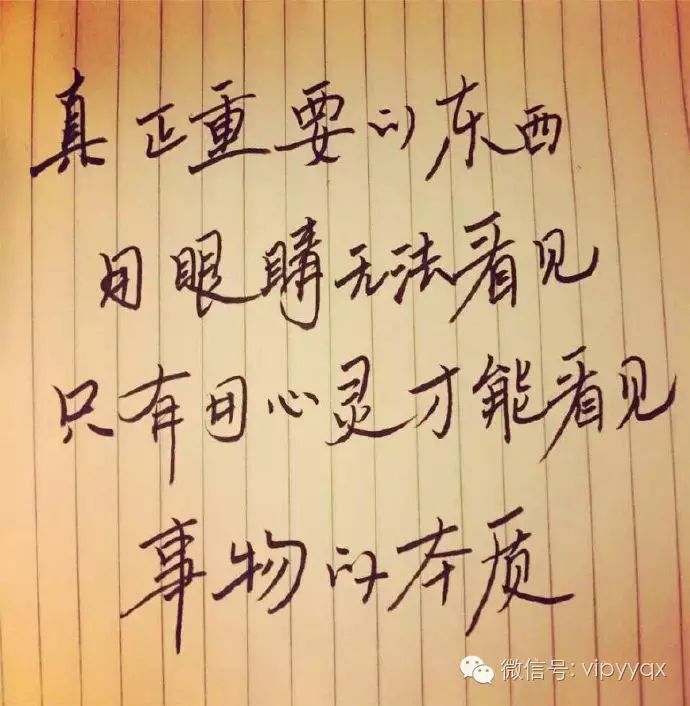 真正重要的东西
用眼睛无法看见
只有用心灵才能看见
事物的本质
微信号: vipyyqx